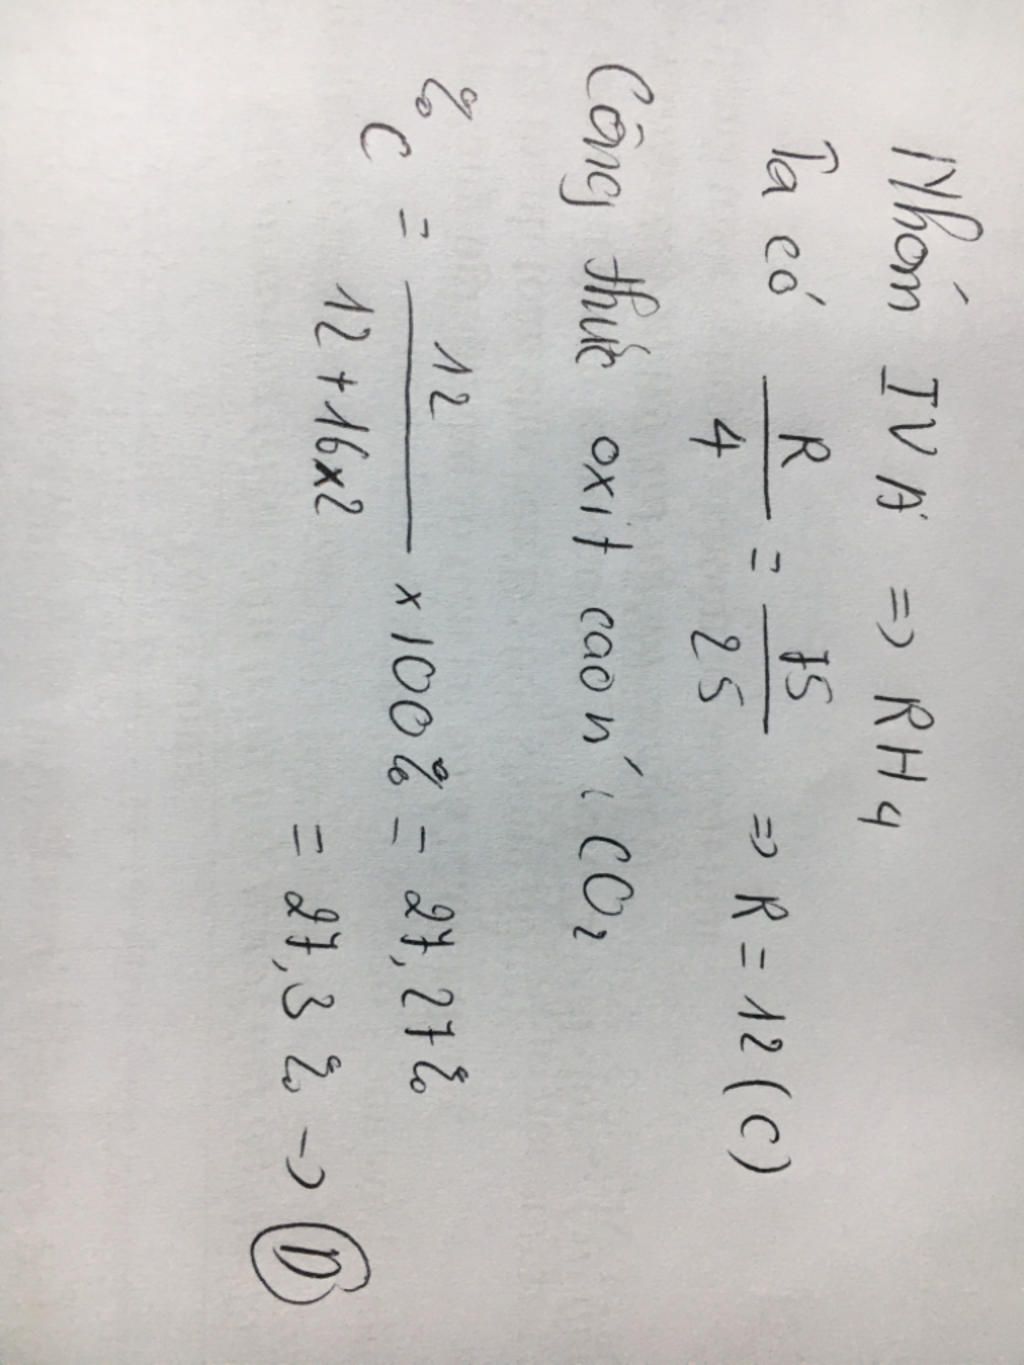 Nhóm IVA => RH4
Ta có R/4 = 75/25 => R = 12 (C)
Công thức oxit cao n' : CO2
%C = 12/(12 + 16x2) x 100% = 27,27%
= 27,3% -> D